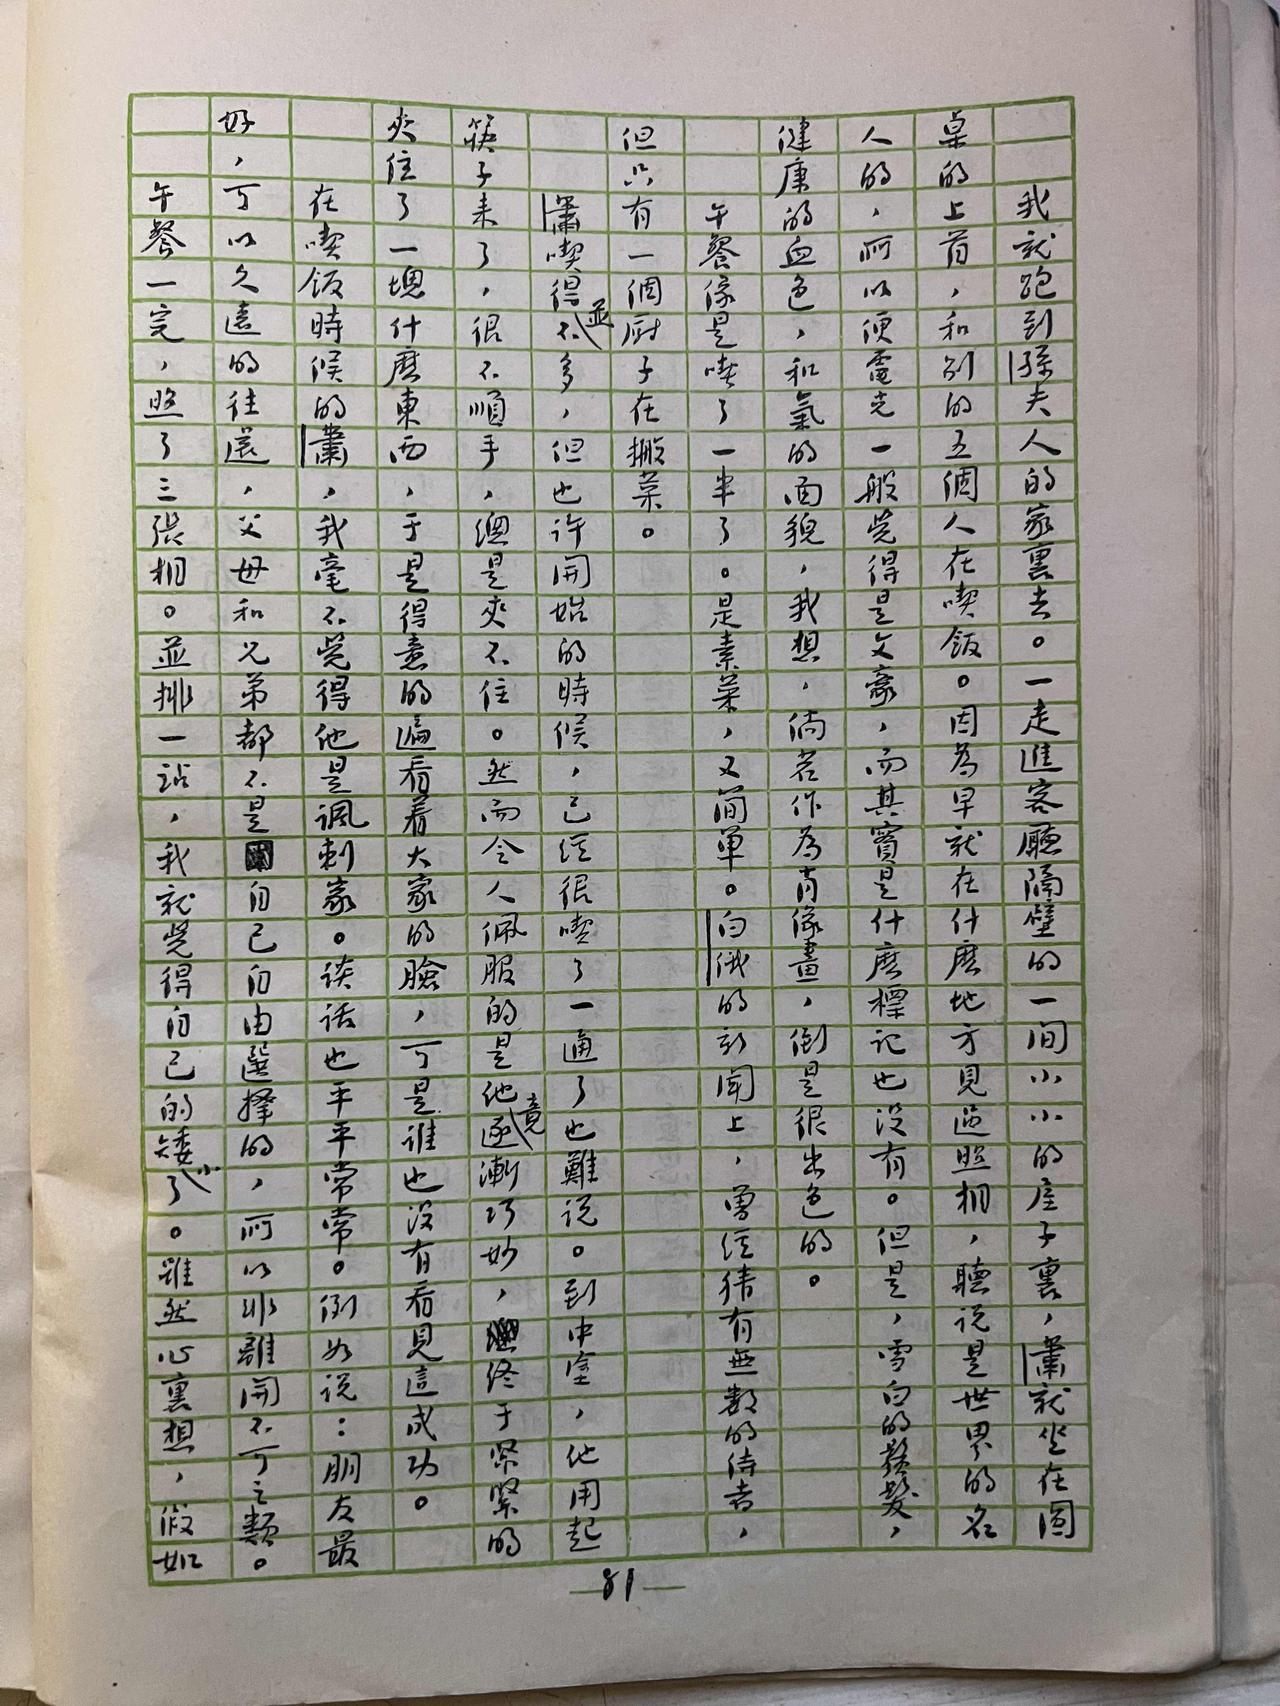 我就跑到孫夫人的家裏去。一走進客廳隔壁的一間小小的屋子裏,蕭就坐在圓
桌的上首,和别的五個人在喫飯。因為早就在什麽地方見過照相,聽说是世界的名
人的,所以便電光一般覺得是文豪,而其實是什麽標记也没有。但是,雪白的鬍髮,
健康的血色,和氣的面貌,我想,倘若作為肖像畫,倒是很出色的。
午餐像是喫了一半了。是素菜,又简單。白俄的新闻上,曾經猜有無數的侍者,
但只有一個厨子在搬菜。
蕭喫得並不多,但也许開始的時候,已經很喫了一通了也難说。到中途,他用起
筷子来了,很不順手,總是夾不住。然而令人佩服的是他竟逐漸巧妙,終于緊緊的
夾住了一塊什麽東西,于是得意的遍看着大家的臉,可是谁也没有看見這成功。
在喫飯時候的蕭,我毫不覺得他是讽刺家。谈话也平平常常。例如说:朋友最
好,可以久遠的往還,父母和兄弟都不是自己自由選擇的,所以非離開不可之類。
午餐一完,照了三張相。並排一站,我就覺得自己的矮小了。雖然心裏想,假如
—81—